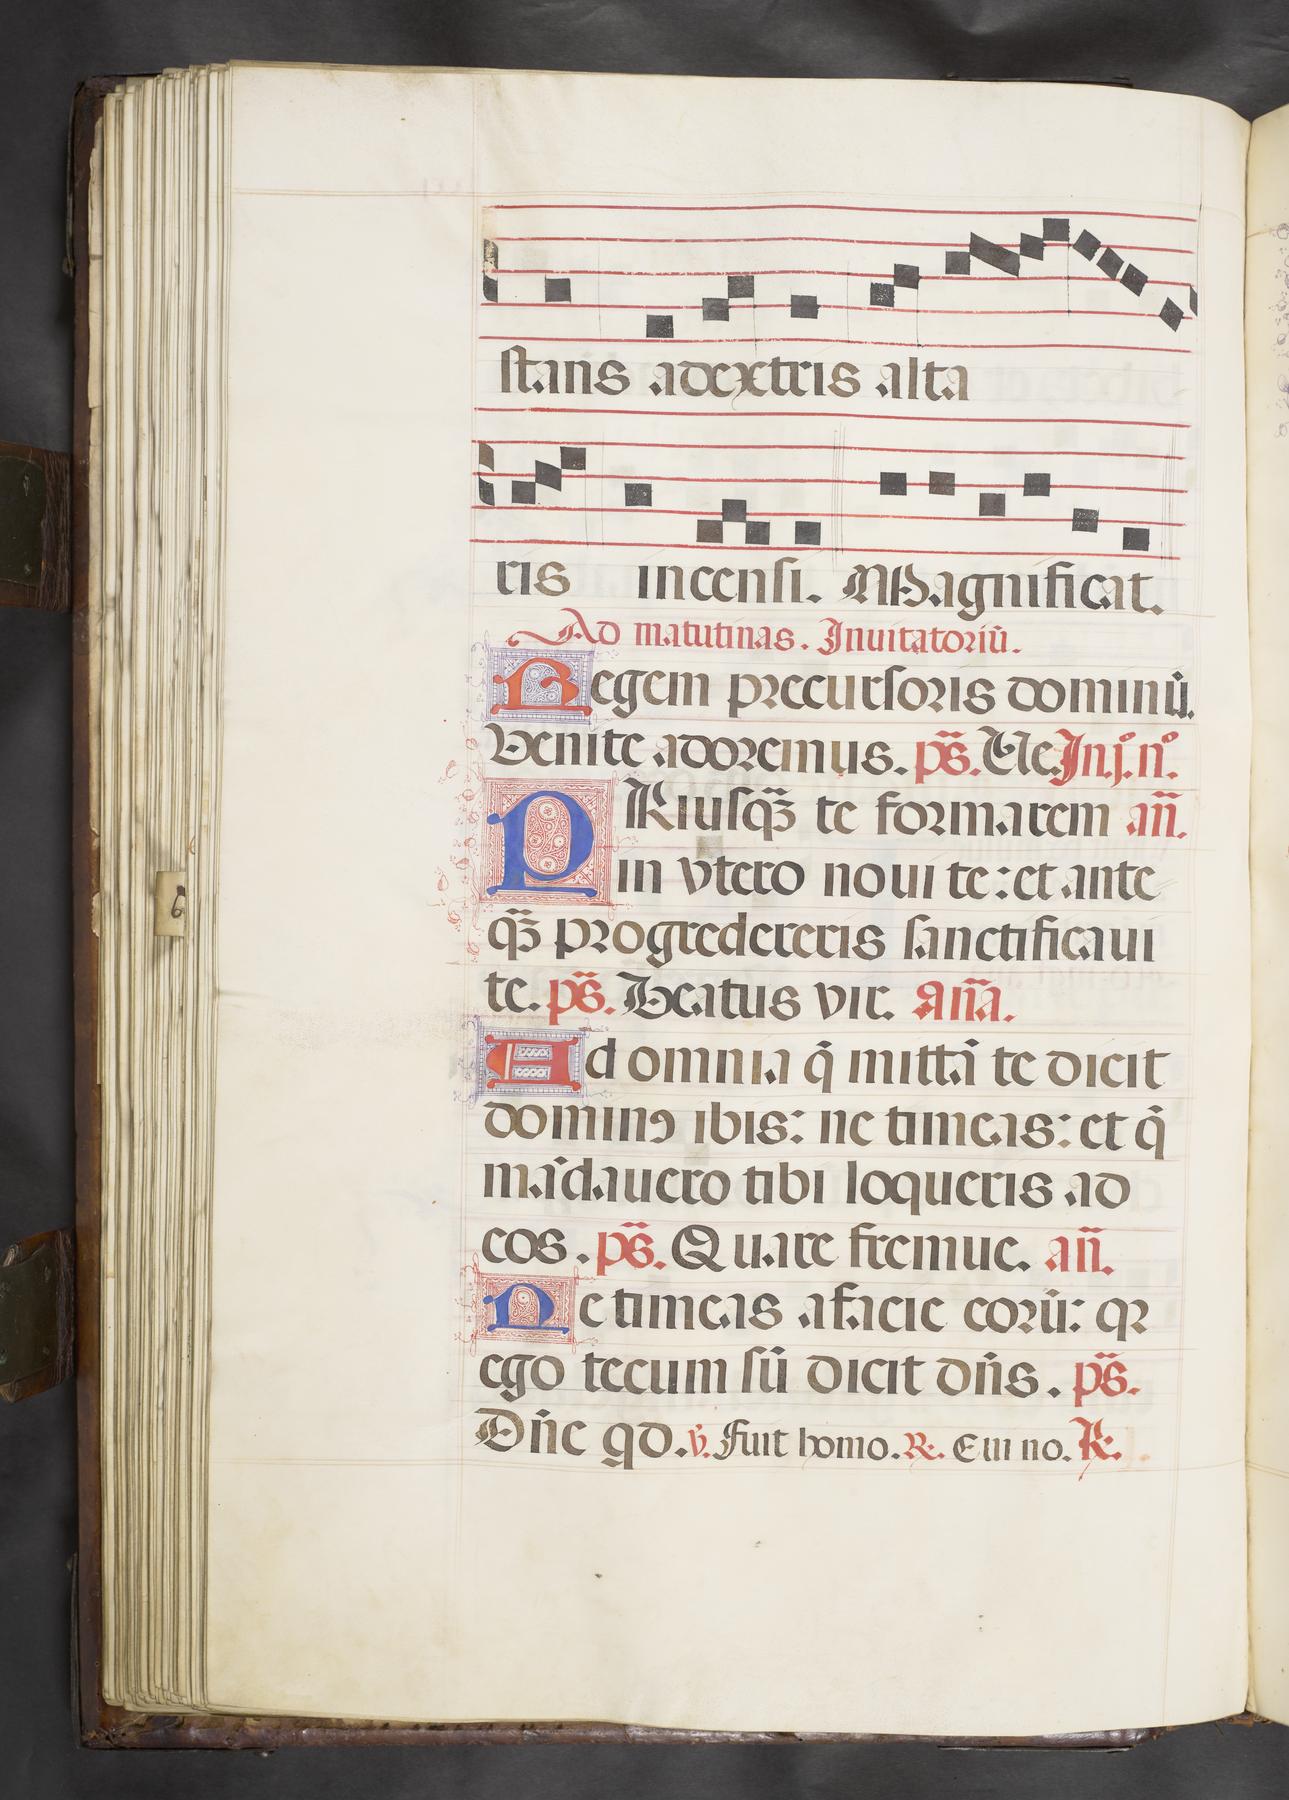 stans adextris alta
ris incensi. Magnificat.
Ad matutinas. Inuitatoriū.
Regem precursoris dominū.
Venite adoremus. ps̄. Ve. In .j. nº.
PRiusq̄ꝫ te formarem an̄.
in vtero noui te: et ante
q̄ꝫ progredereris sanctificaui
te. ps̄. Beatus vir. An̄a.
Ad omnia q̄ mittā te dicit
dominꝰ ibis: ne timeas: et q̄
mādauero tibi loqueris ad
eos. ps̄. Quare fremue. an̄.
Ne timeas afacie eorū: qꝛ
ego tecum sū dicit dn̄s. ps̄.
Dn̄e qd. v̄. Fuit homo. ℟. Eui no. ℟.
6